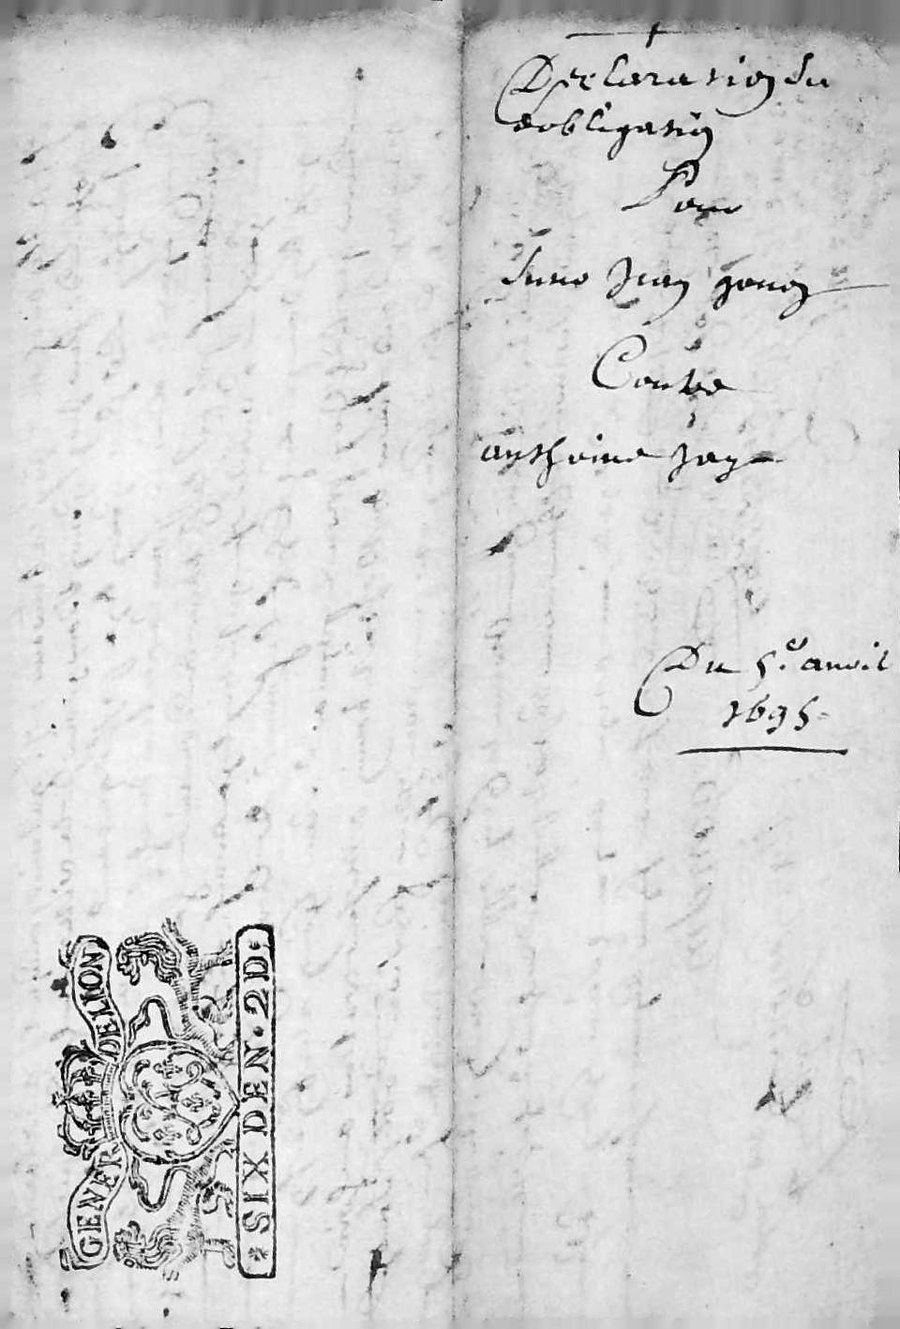 Declaration du
obligation
Pour
Jean
Contre
anthoine Jay
Du 5e avril
1695
GENER DELION
SIX DEN. 2D.